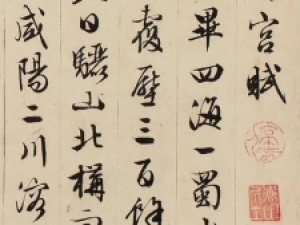 宮賦
畢四海一蜀
覆壓三百餘
日驪山北構
咸陽二川溶